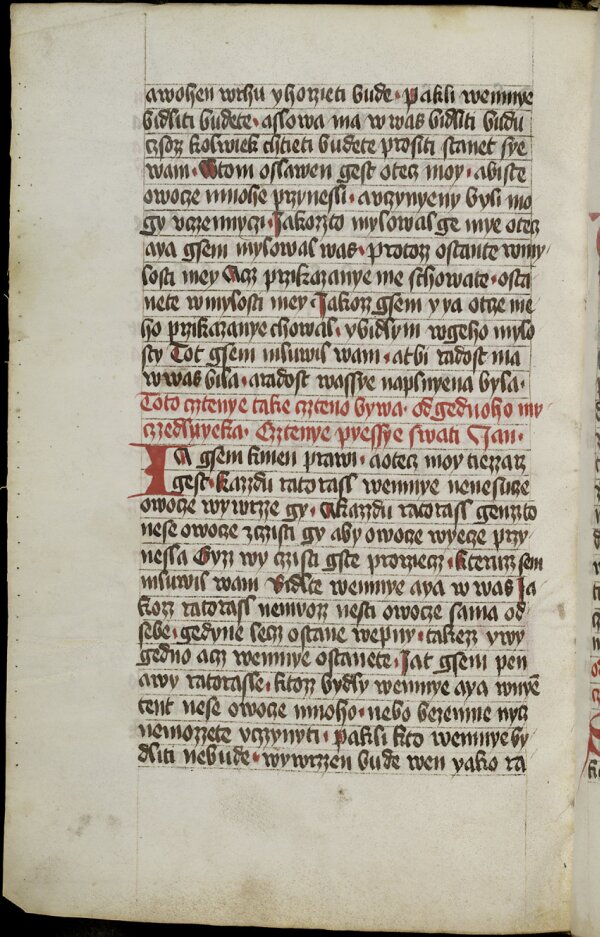 awohen wrhu yhorzieti bude · pakli wemnye
bidliti budete · aslowa ma wwas bidliti budu
czoz kolwiek chtieti budete prositi stanet sye
wam · Wtom oslawen gest otecz moy · abiste
owocze mnohe przynesli · auczynyeny byli mo
gy uczennyczi · Jakozto mylowal ge mye otecz
aya gsem mylowal was · protoz ostante wmy
losti mey Acz przikazanye me schowate · osta
nete wmylosti mey · Jakoz gsem yya otcze me
ho przikazanye chowal · ybidlym wgeho mylo
sty Tot gsem mluwil wam · atbi radost ma
wwas bila · aradost wassye naplnyena byla ·
Toto cztenye take czteno bywa · od gednoho mu
czedlnyka · Cztenye pyessye swati Jan ·
JA gsem kmen prawi · aotecz moy tiezzarz
gest · kazzdu ratorasl wemnye nenesucze
owocze wywrze gy · akazzdu ratorasl genzto
nese owocze zczisti gy aby owocze wyecze przy
nesla Gyzz wy czisti gste prorziecz · kteruz sem
mluwil wam Bidlte wemnye aya wwas Ja
koz ratorasl nemoz nesti owocze sama od
sebe · gedyne lecz ostane wepny · takez ywy
gedno acz wemnye ostanete · Jat gsem pen
awy ratorasle · ktoz bydly wemnye aya wnyē
tent nese owocze mnoho · nebo bezemne nycz
nemozzete uczynyti · pakli kto wemnye by
dliti nebude · wywrzzen bude wen yako ra